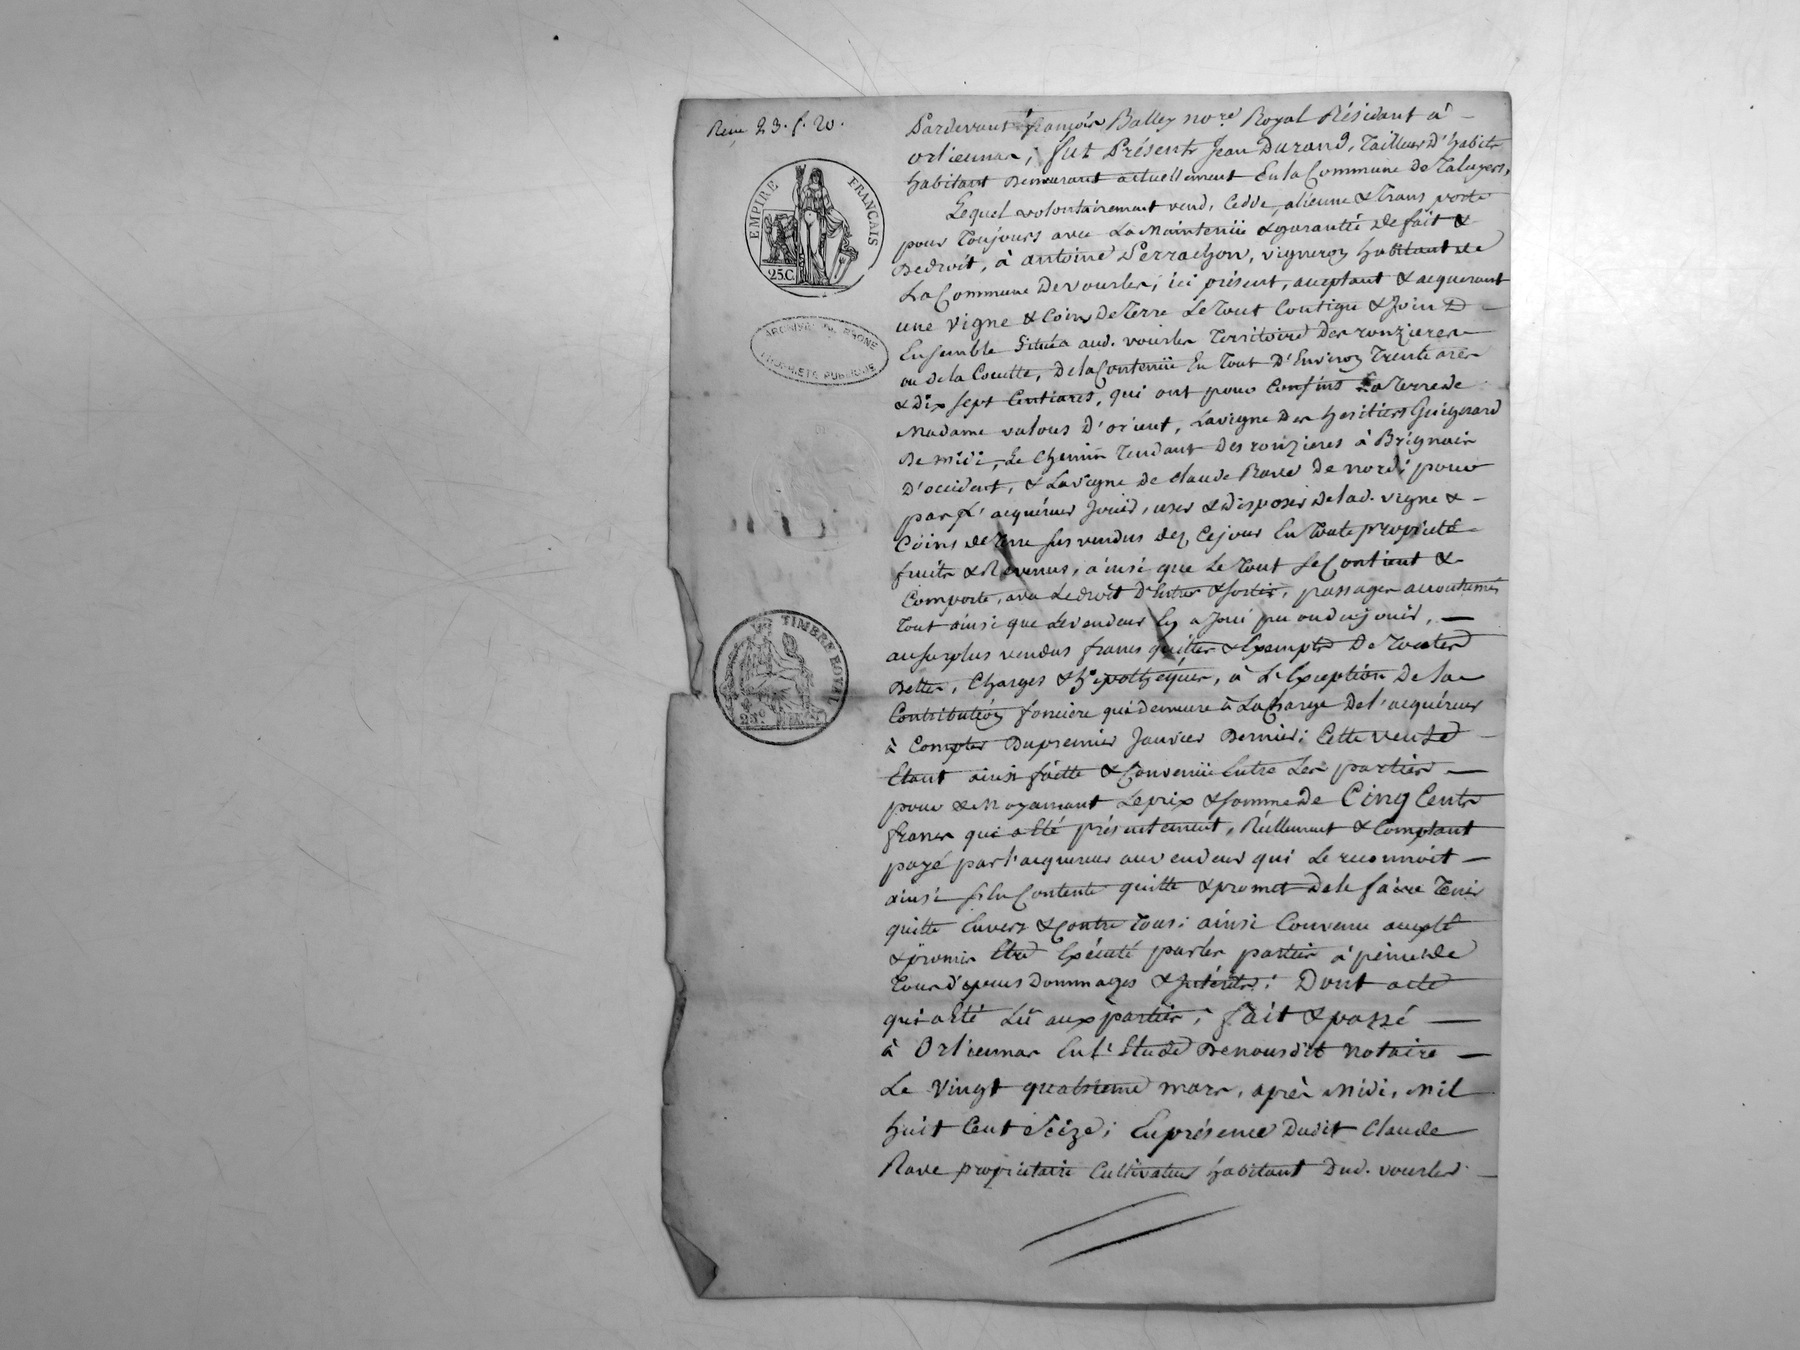 23. f. 20.
EMPIRE FRANÇAIS
25 C.
ARCHIVES DU RHONE
PROPRIÉTÉ PUBLIQUE
TIMBRE ROYAL
25c.
Pardevant françois Balley nore. Royal Résidant à
orliennas; fut Présents Jean Durand, Tailleur D'habits
habitant Demeurant actuellement En la Commune de Taluyers,
Lequel volontairement vend, Cedde, aliene & transporte
pour Toujours avec La Maintenüe & garantie De fait &
De droit, à antoine Perrachon, vigneron habitant de
La Commune De vourles, ici présent, aceptant & acquerant
une vigne & Coins De Terre Le Tout Contigu & Joind
Ensemble Situés aud. vourles Territoire Des ronzieres
ou de la Cocutte, De la Contenüe En Tout D'Environ Trente ares
& Dix sept Centiares, qui ont pour Confins La Terre de
Madame valous D'orient, La vigne Des heritiers Guignard
De midi, Le Chemin Tendant Des ronzieres à Brignais
D'occident, & La vigne De Claude Rave De nord; pour
par L'acquéreur Jouir, user & Disposer De lad. vigne &
Coins de Terre sus vendus dez Ce jour En Toute propriété
fruits & Revenus, ainsi que Le Tout Se Contient &
Comporte, avec Le droit D'Entrer & sortir, passages accoutumés
Tout ainsi que Le vendeur En a Joui pu ou du jouir,
au surplus vendus francs quittes & Exempts De Toutes
Dettes, Charges & hipothéques, à L'Exception De la
Contribution fonciere qui Demeure à La Charge De l'acquéreur
à Compter Du premier Janvier Dernier; Cette vente
Etant ainsi faitte & Convenüe Entre Les parties
pour & Moyennant Le prix & somme De Cinq Cents
francs qui a Eté présentement, Réellement & Comptant
payé par l'acquereur au vendeur qui Le reconnoit
ainsi s'En Contente quitte & promet De le faire Tenir
quitte Envers & Contre Tous; ainsi Convenu accepté
& promis Etre Exécuté par les parties à peine de
Tous Dépens Dommages & Intérêts; Dont acte
qui a Eté Lü aux parties; fait & passé
à Orliennas En l'Etude De nous dit Notaire
Le Vingt quatrieme mars, après Midi, Mil
huit Cent Seize; En présence Dudit Claude
Rave propriétaire Cultivateur habitant Dud. vourles